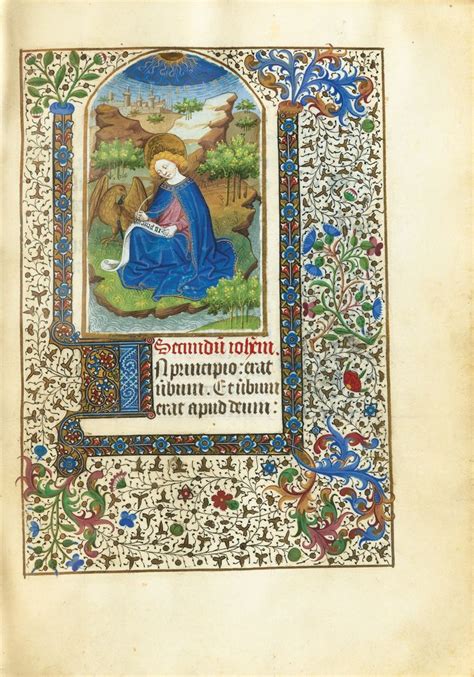 Secundū iohem.
IN principio: erat
ūbum. Et ūbum
erat apud deum: